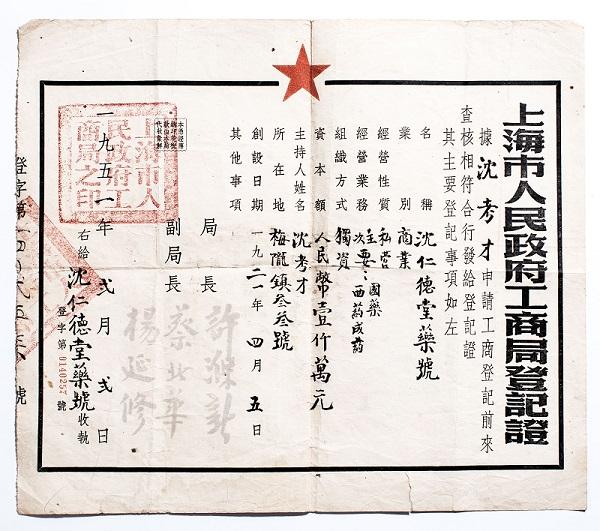 上海市人民政府工商局登記證
據沈考才申請工商登記前來
查核相符合行發給登記證
其主要登記事項如左
名稱 沈仁德堂藥號
業別 商業
經營性質 私营
經營業務 主要：國藥
次要：西药成药
組織方式 獨資
資本額 人民幣壹仟萬元
主持人姓名 沈考才
所在地 梅隴鎮叁叁號
創設日期 一九二一年四月五日
其他事項
局長 許滌新
副局長 蔡北華
楊延修
上海市人民政府工商局之印
一九五一年弍月弍日
右給沈仁德堂藥號收執
登字第0140257號